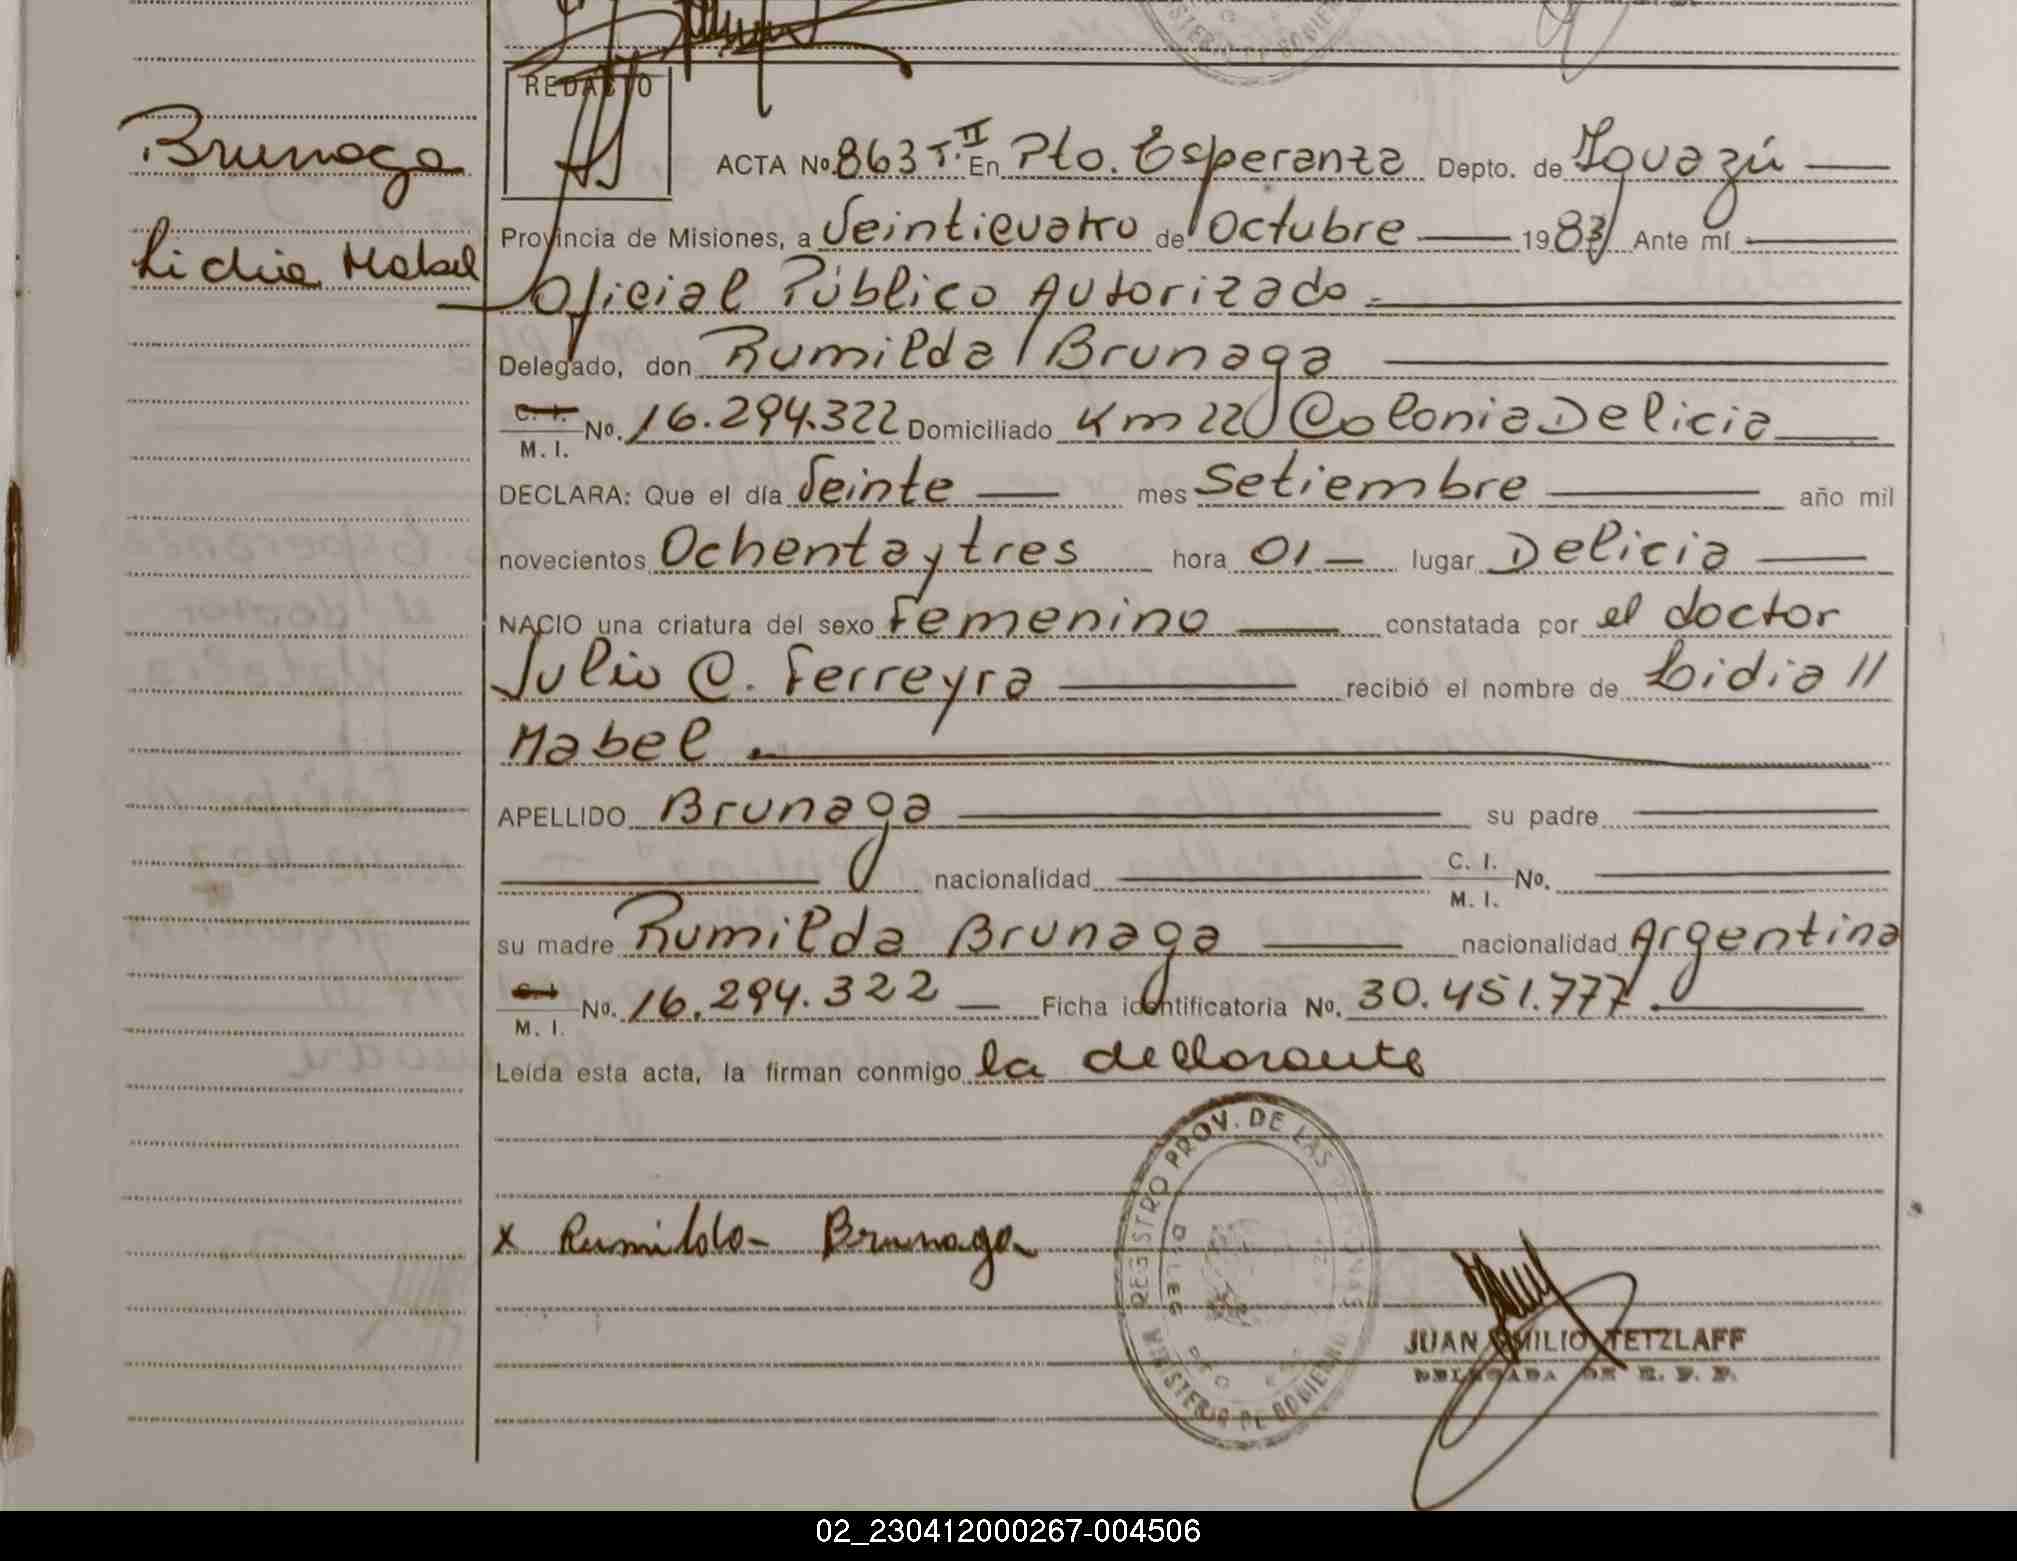 MINISTERIO DE GOBIERNO
REDACTO
Brunaga
Lidia Mabel
ACTA No. 863 T. II En Pto. Esperanza Depto. de Iguazú
Provincia de Misiones, a Veinticuatro de Octubre 1983 Ante mí
Oficial Público Autorizado.
Delegado, don Rumilda Brunaga
C. I. M. I. No. 16.294.322 Domiciliado Km 22 Colonia Delicia
DECLARA: Que el día Veinte mes Setiembre año mil
novecientos Ochenta y tres hora 01 lugar Delicia
NACIO una criatura del sexo Femenino constatada por el doctor
Julio C. Ferreyra recibió el nombre de Lidia //
Mabel
APELLIDO Brunaga su padre
nacionalidad C. I. M. I. No.
su madre Rumilda Brunaga nacionalidad Argentina
C. I. M. I. No. 16.294.322 Ficha identificatoria No. 30.451.777
Leída esta acta, la firman conmigo la declarante
REGISTRO PROV. DE LAS PERSONAS
MINISTERIO DE GOBIERNO
x Rumilda Brunaga
JUAN EMILIO TETZLAFF
DELEGADA DE R. P. P.
02_230412000267-004506